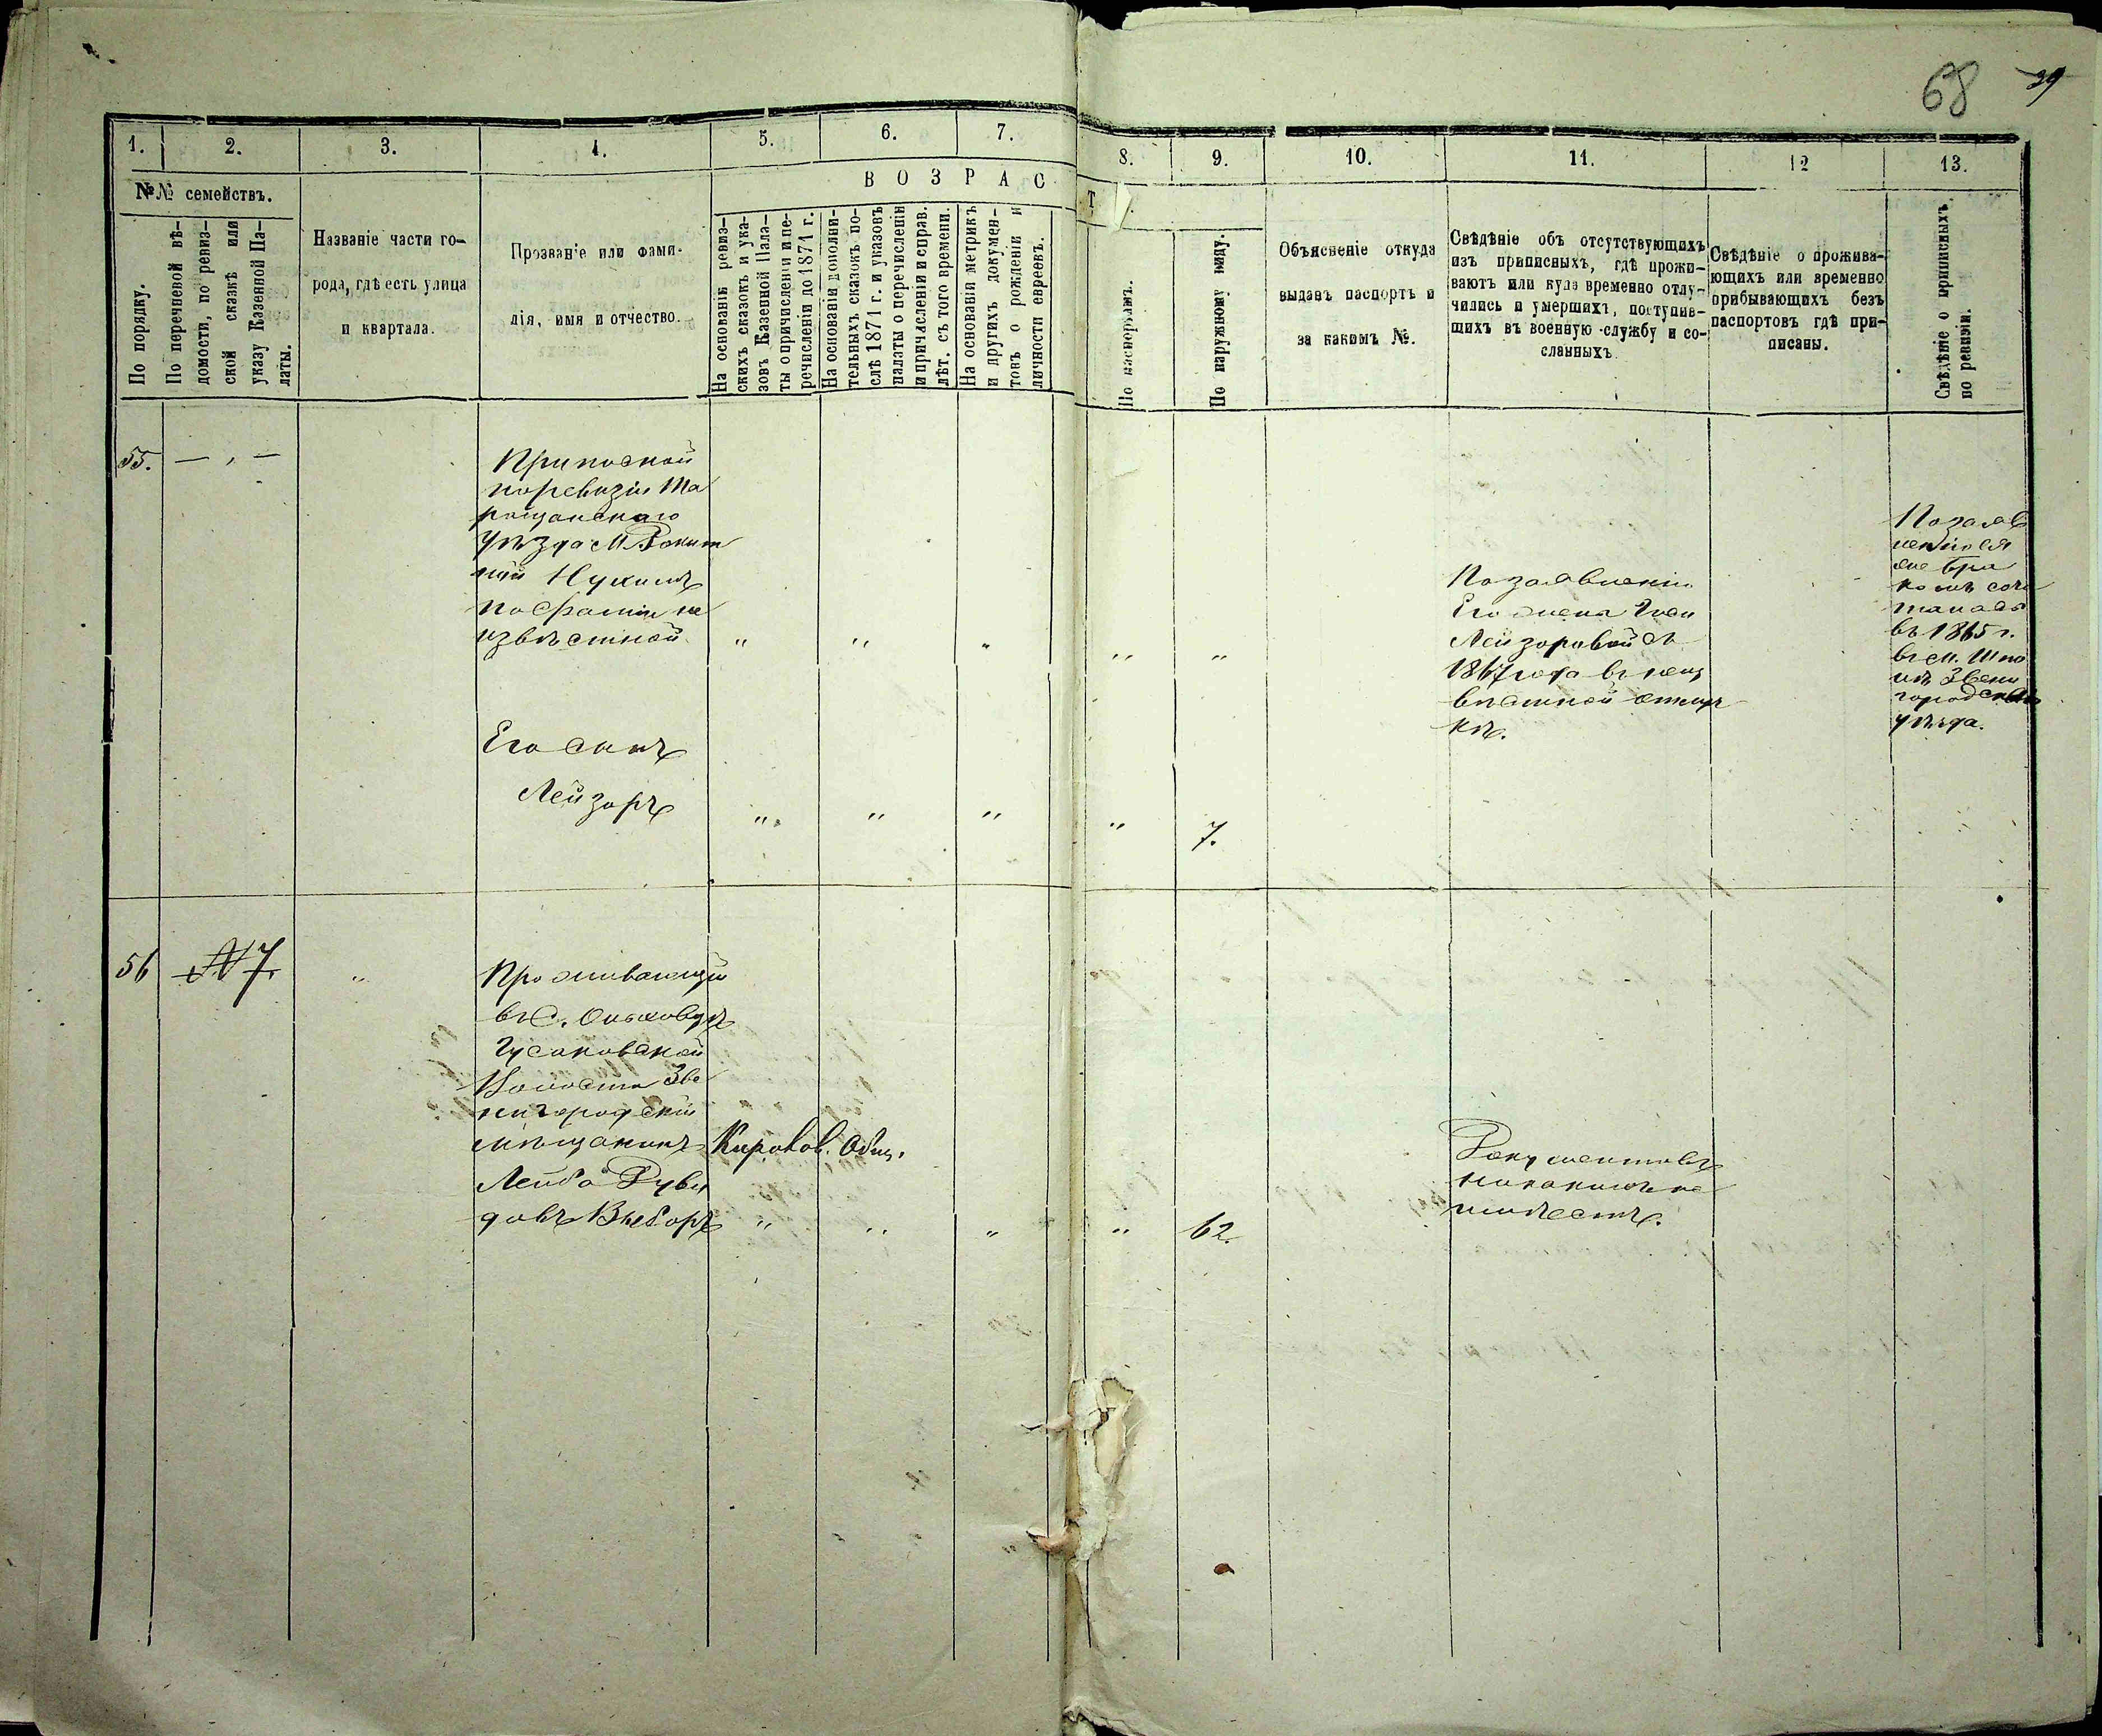 68 39
1. 2. 3. 4. 5. 6. 7. 8. 9. 10. 11. 12 13.
№№ семействъ.
В О З Р А С Т
По порядку.
По перечневой вѣ-
домости, по ревиз-
ской сказкѣ или
указу Казенной Па-
латы.
Названіе части го-
рода, гдѣ есть улица
и квартала.
Прозваніе или фами-
лія, имя и отчество.
На основаніи ревиз-
скихъ сказокъ и ука-
зовъ Казенной Пала-
ты о причисленіи и пе-
речисленіи до 1871 г.
На основаніи дополни-
тельныхъ сказокъ по-
слѣ 1871 г. и указовъ
палаты о перечисленіи
и причисленіи и справ.
лѣт. съ того времени.
На основаніи метрикъ
и другихъ докумен-
товъ о рожденіи и
личности евреевъ.
По паспортамъ.
По наружному виду.
Объясненіе откуда
выданъ паспортъ и
за какимъ №.
Свѣдѣніе объ отсутствующихъ
изъ приписныхъ, гдѣ прожи-
ваютъ или куда временно отлу-
чились и умершихъ, поступив-
шихъ въ военную службу и со-
сланныхъ
Свѣдѣніе о прожива-
ющихъ или временно
прибывающихъ безъ
паспортовъ гдѣ при-
писаны.
Свѣдѣніе о приписныхъ
по ревизіи.
55. — , —
Приписной
по ревизіи Та
ращанскаго
уѣзда М. Рокит
ной Нухимъ
по фамиліи не
извѣстной " " " " "
По заявленію
Его жена
Лейзоровой съ
1867 года въ неиз
вѣстной отлуч
кѣ.
По заяв
ленію
бра
комъ соче
талась
въ 1865 г.
въ м. Шпо
лѣ Звени
городскаго
уѣзда.
Его сынъ
Лейзоръ " " " " 7.
56 № 7. "
Проживающій
въ С. Ольховцѣ
Гусаковской
Волости Зве
нигородскій
мѣщанинъ Кирилов. Общ.
Лейба Руви
довъ Выборъ " " " " 62.
Документовъ
никакихъ не
имѣетъ.